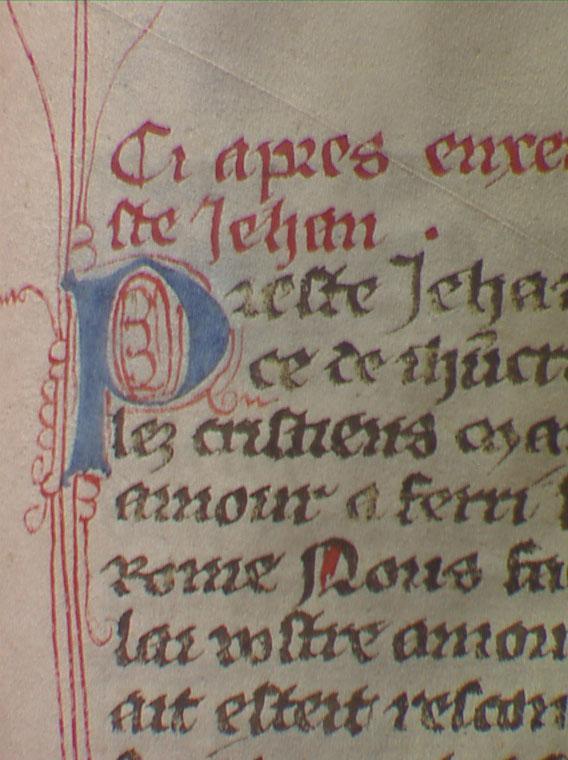 Ci apres enxe
ste Jehan .
Prieste Jeha
ce de ihūcr
lez cristiens
amour a ferri
Rome Nous
lai vostre amou
ait esteit rescon